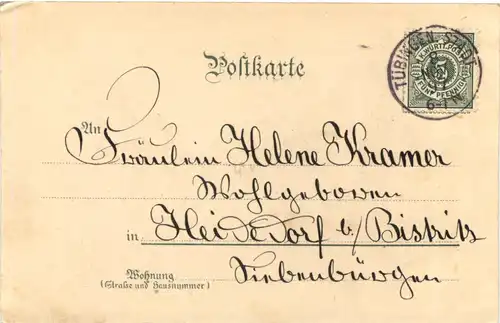 TÜBINGEN STADT
K. WÜRTT. POST
5
FÜNF PFENNIG
Postkarte
An
Fräulein Helene Kramer
Wohlgeboren
in Heidedorf b/Bistritz
Siebenbürgen
Wohnung
(Straße und Hausnummer)